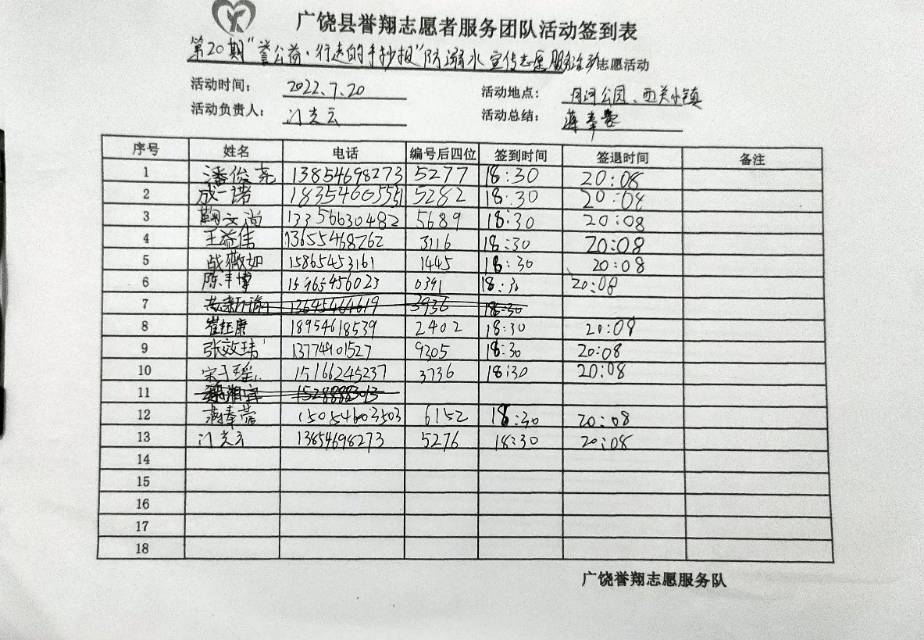 广饶县誉翔志愿者服务团队活动签到表
第20期"誉公益·行走的手抄报"防溺水宣传志愿服务活动志愿活动
活动时间: 2022.7.20 活动地点: 月河公园、西关小镇
活动负责人: 门克云 活动总结:
序号 姓名 电话 编号后四位 签到时间 签退时间 备注
1 潘俊尧 13854698273 5277 18:30 20:08
2 成一诺 18354605551 5282 18:30 20:08
3 鞠文尚 13356630482 5689 18:30 20:08
4 王益伟 13655468262 3116 18:30 20:08
5 战薇如 15865453161 1445 18:30 20:08
6 陈丰博 0391 18:30 20:08
7 13645464619 3936 18:30
8 崔钰康 18954618539 2402 18:30 20:09
9 张效玮 13774901527 9305 18:30 20:08
10 宋子瑶 15166245237 3736 18:30 20:08
11
12 15054603503 6152 18:30 20:08
13 门克云 13854698273 5276 18:30 20:08
14
15
16
17
18
广饶誉翔志愿服务队